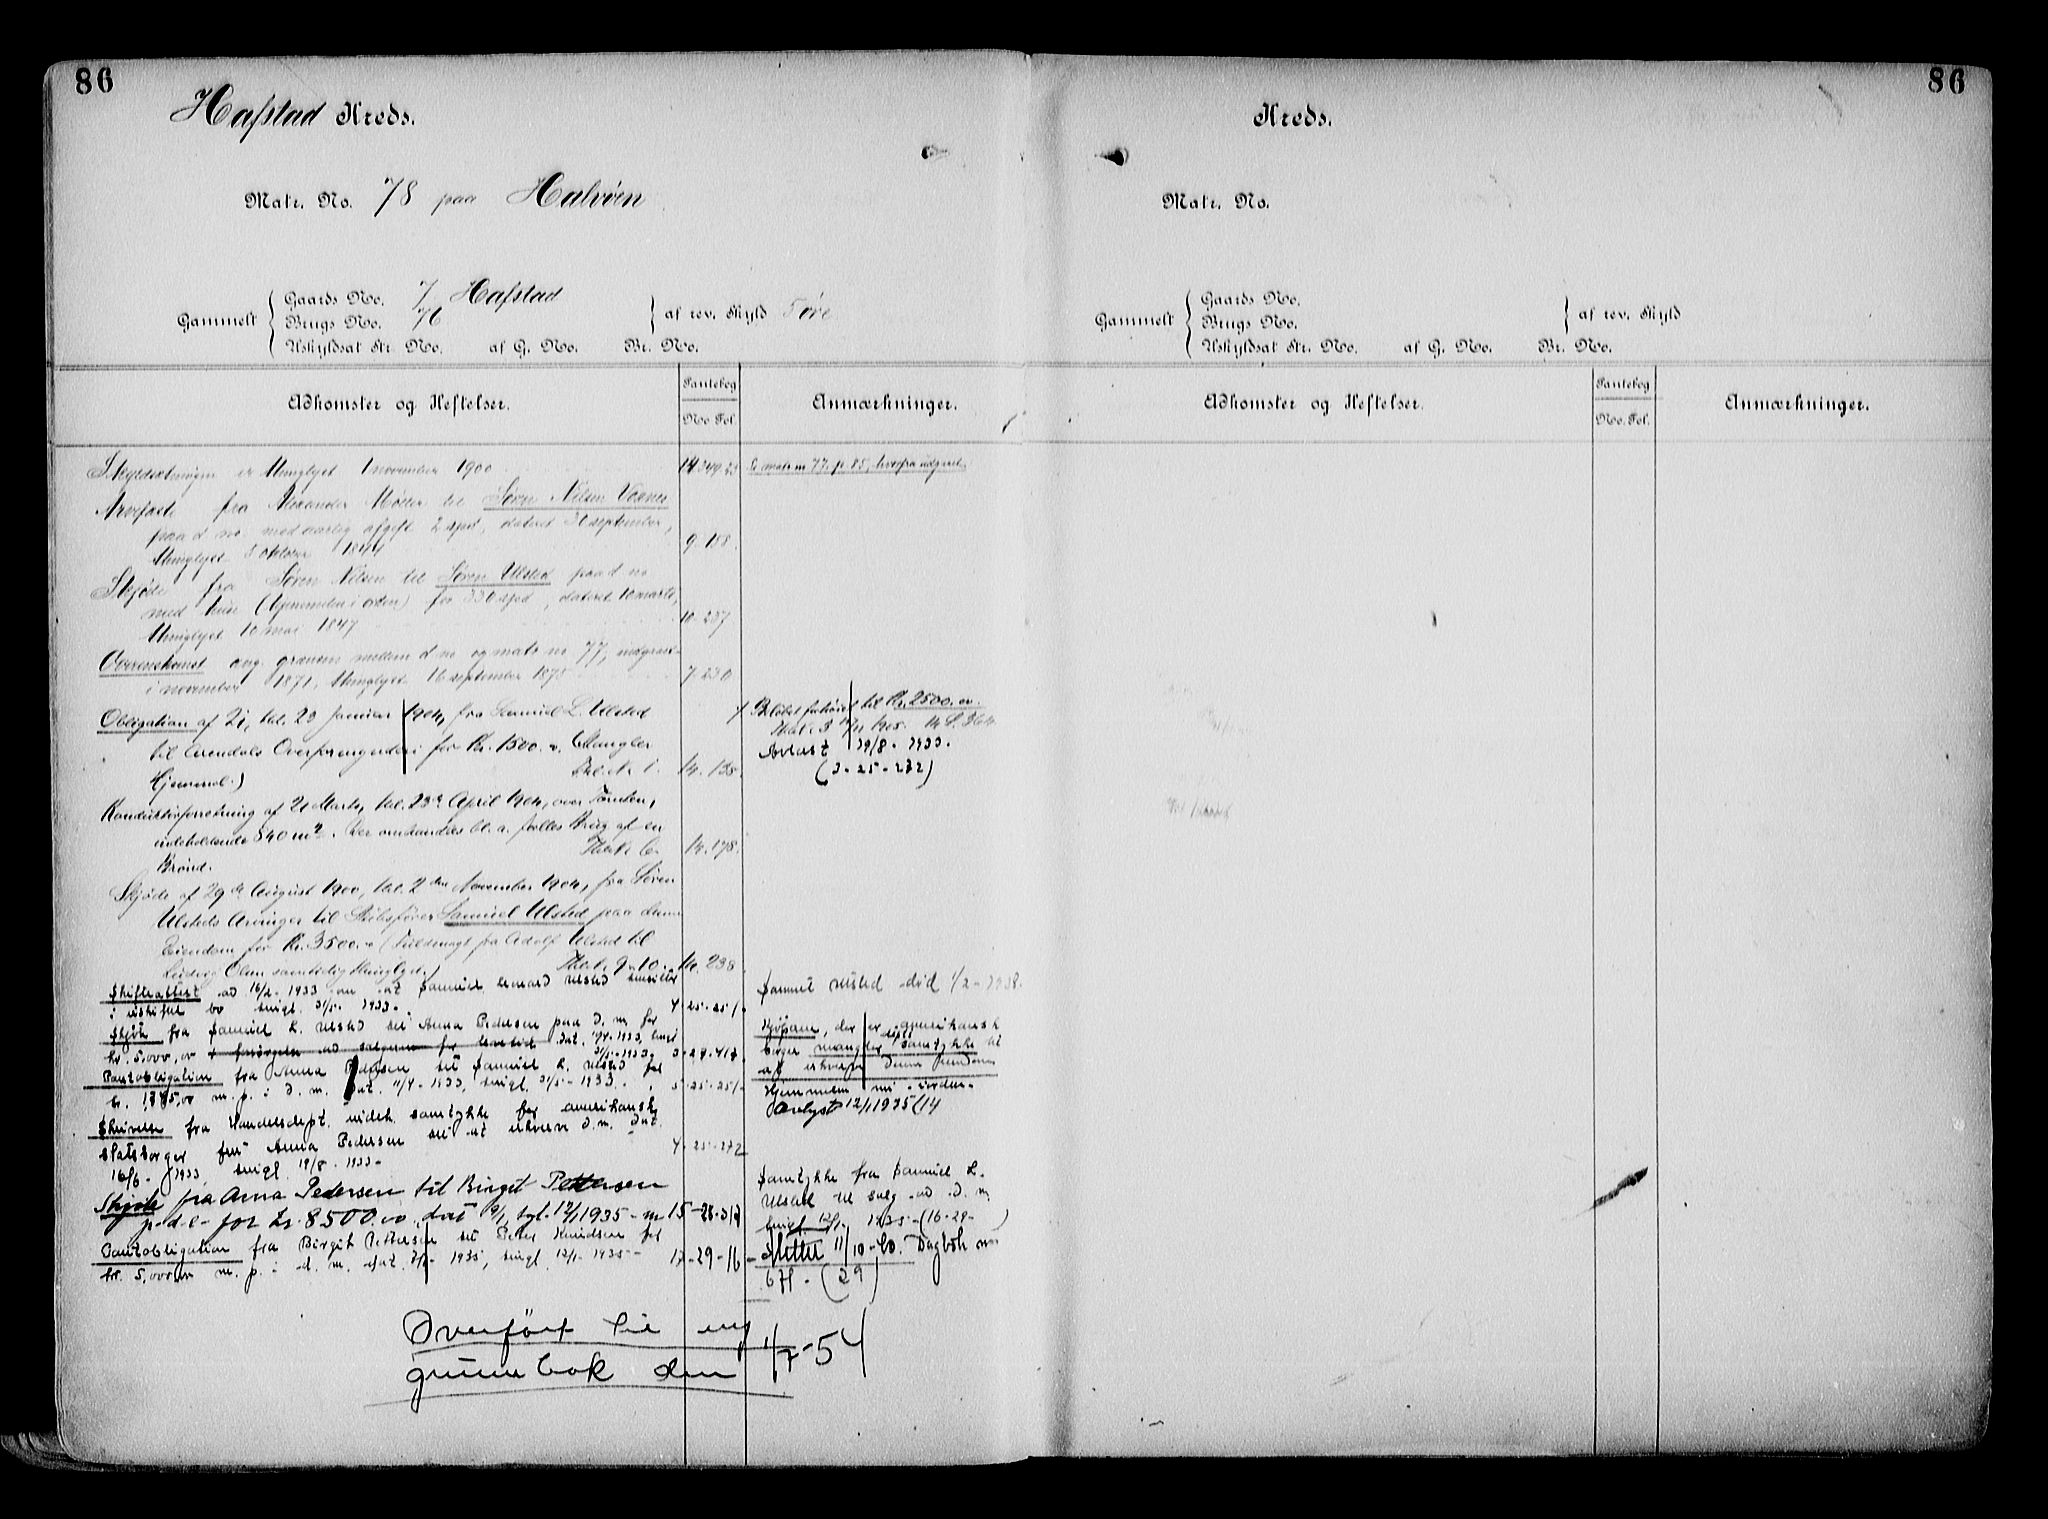 86
Hafstad Kreds.
Matr. No. 78 paa Halvöen
Gammelt
Gaards No. 7 Hafstad
Brugs No. 76
Uskyldsat Str. No. af G. No. Br. No.
af rev. Skyld 5 øre
Adkomster og Heftelser.
Pantebog
No. Fol.
Anmærkninger.
Skyldsætningen er thinglyst 1 november 1900 14
Se matr. no 77, p. 85, hvorfra udgaaet.
Arvefæste fra Alexander Møller til Søren Nilsen
paa d no med aarlig afgift 2 spd, dateret september,
thinglyst 5 oktober 1844 9. 158.
Skjøde fra Søren Nilsen til Søren Ulsted paa d no
med huse (Hjemmelen i orden) for 330 spd, dateret 10 marts,
thinglyst 10 mai 1847 10. 237
Overenskomst ang. grænsen mellem d no og matr no 77, indgaaet
i november 1871, thinglyst 16 september 1875 7. 230
Obligation af 21, tnl. 23 Januar 1904, fra Samuel L. Ulsted
til Arendals Overformynderi for Kr. 1500.00 (Mangler
Hjemmel.) 14. 135.
Beløbet forhöiet til Kr. 2500.00
Avlest 19/8 - 1933.
(3 - 25 - 272)
Konduktørforretning af 21 Marts, tnl. 23de April 1904, over Tomten,
indeholdende 840 m2. Der omhandles bl. a. fælles Brug af en
Brönd. 14. 178.
Skjøde af 29de August 1900, tnl. 2den November 1904, fra Søren
Ulsteds Arvinger til Skibsfører Samuel Ulsted paa denne
Eiendom for Kr. 3500.00 (Fuldmagt fra Adolf Ulsted til
Ludvig Olsen samtidig thinglyst. 14. 238
Skifteattest ad 16/2 - 1933 om at Samuel Leonard Ulsted hensitter
i uskiftet bo tingl. 31/5 - 1933. 4 - 25 - 251.
Samuel Ulsted død 1/2 - 1938.
Skjöte fra Samuel L. Ulsted til Anna Pedersen paa d. m. for
kr. 5,000,00
31/5 - 1933. 3 - 24 - 417.
Kjøperen, der er amerikansk
borger mangler samtykke til
at erhverve denne eiendom
Pantobligation fra Anna Pedersen til Samuel L. Ulsted for
m. p. i d. m. dat. 11/4 - 1933, tingl. 31/5 - 1933. 5 - 25 - 251
Hjemmelen nu i orden.
Avlyst 12/1 1935 (14
Skrivelse fra Handelsdept. vedk. samtykke for amerikansk
statsborger fru Anna Pedersen til at erhverve d. m. dat.
16/6 - 1933, tingl. 19/8 - 1933. 4 - 25 - 272
Skjöte fra Anna Pedersen til Birgit Pettersen
p. d. e. for kr. 8500.00, dat 9/1, tgl. 12/1 1935 15 - 28 - 317
Samtykke fra Samuel L.
Ulsted til salg av d. m.
tingl 12/1 1935 (16 - 29 - )
Pantobligation fra Birgit Pettersen til Peter Knudsen for
kr. 5,000,00 m. p. i d. m. dat. 1935, tingl. 12/1 - 1935 - 17 - 29 - 16
Slettet 11/10 - 40. Dagbok nr
671 - (29)
Overført til ny
grunnbok den 1/7 - 54
86
Kreds.
Matr. No.
Gammelt
Gaards No.
Brugs No.
Uskyldsat Str. No. af G. No. Br. No.
af rev. Skyld
Adkomster og Heftelser.
Pantebog
No. Fol.
Anmærkninger.